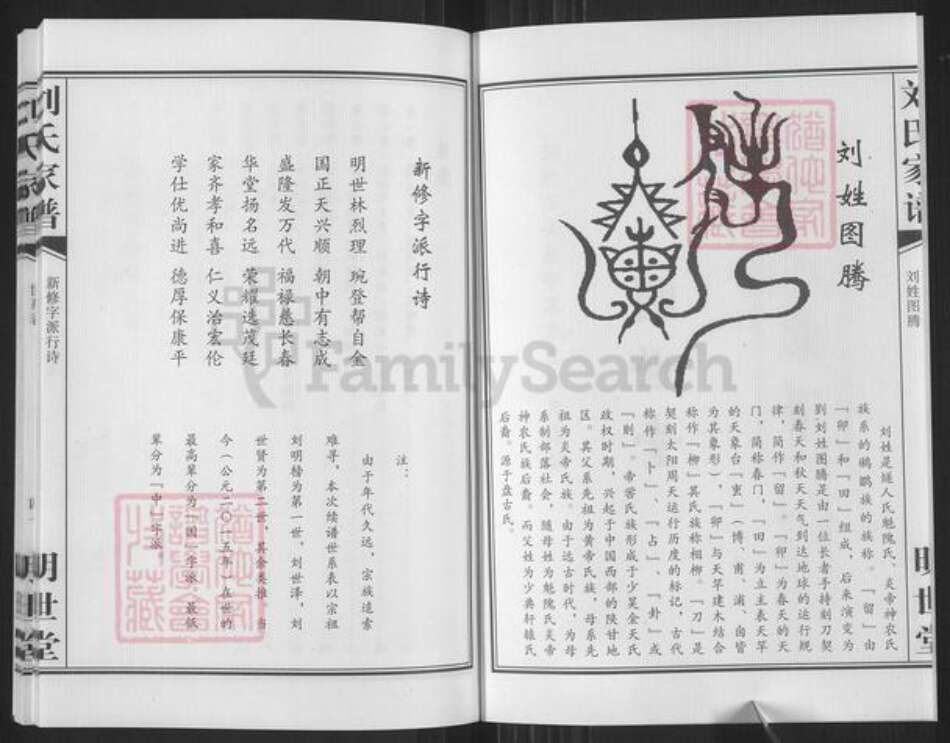 刘氏家谱
刘姓图腾
刘姓图腾
刘姓是燧人氏魁隗氏、炎帝神农氏
族系的鹠鹠族的族称。「留」由
「卯」和「田」组成，后来演变为
刘姓图腾是由一位长者手持刻刀契
刻春天和秋天天气到达地球的运行规
律，简作「留」。「卯」为春天的天
门，简称春门，「田」为立主表天竿
的天象台「圭」（博、甫、浦、卤皆
为其象形），「卯」与天竿建木结合
称作「柳」其民族称相柳。「刀」是
契刻太阳周天运行历度的标记，古代
称作「卜」、「占」、「卦」或
「则」。帝喾氏族形成于少昊金天氏
政权时期，兴起于中国西部的陕甘地
区。其父系先祖为黄帝氏族，母系先
祖为炎帝氏族。由于远古时代，为母
系制部落社会，随母姓为魁隗氏炎帝
神农氏族后裔。而父姓为少典轩辕氏
后裔。源于盘古氏。
新修字派行诗
明世林烈理 琬登帮自金
国正天兴顺 朝中有志成
盛隆发万代 福禄慈长春
华堂扬名远 荣耀选茂廷
家齐孝和喜 仁义治宏伦
学仕优尚进 德厚保康平
注：
由于年代久远，宗族追索
难寻，本次续谱世系表以宗祖
刘明榜为第一世，刘世泽，刘
世贤为第二世，其余类推。当
今（公元二〇一五年）在世的
最高辈分为「国」字派，最低
辈分为「中」字派。
刘氏家谱
新修字派行诗
明世堂
明世堂
FamilySearch